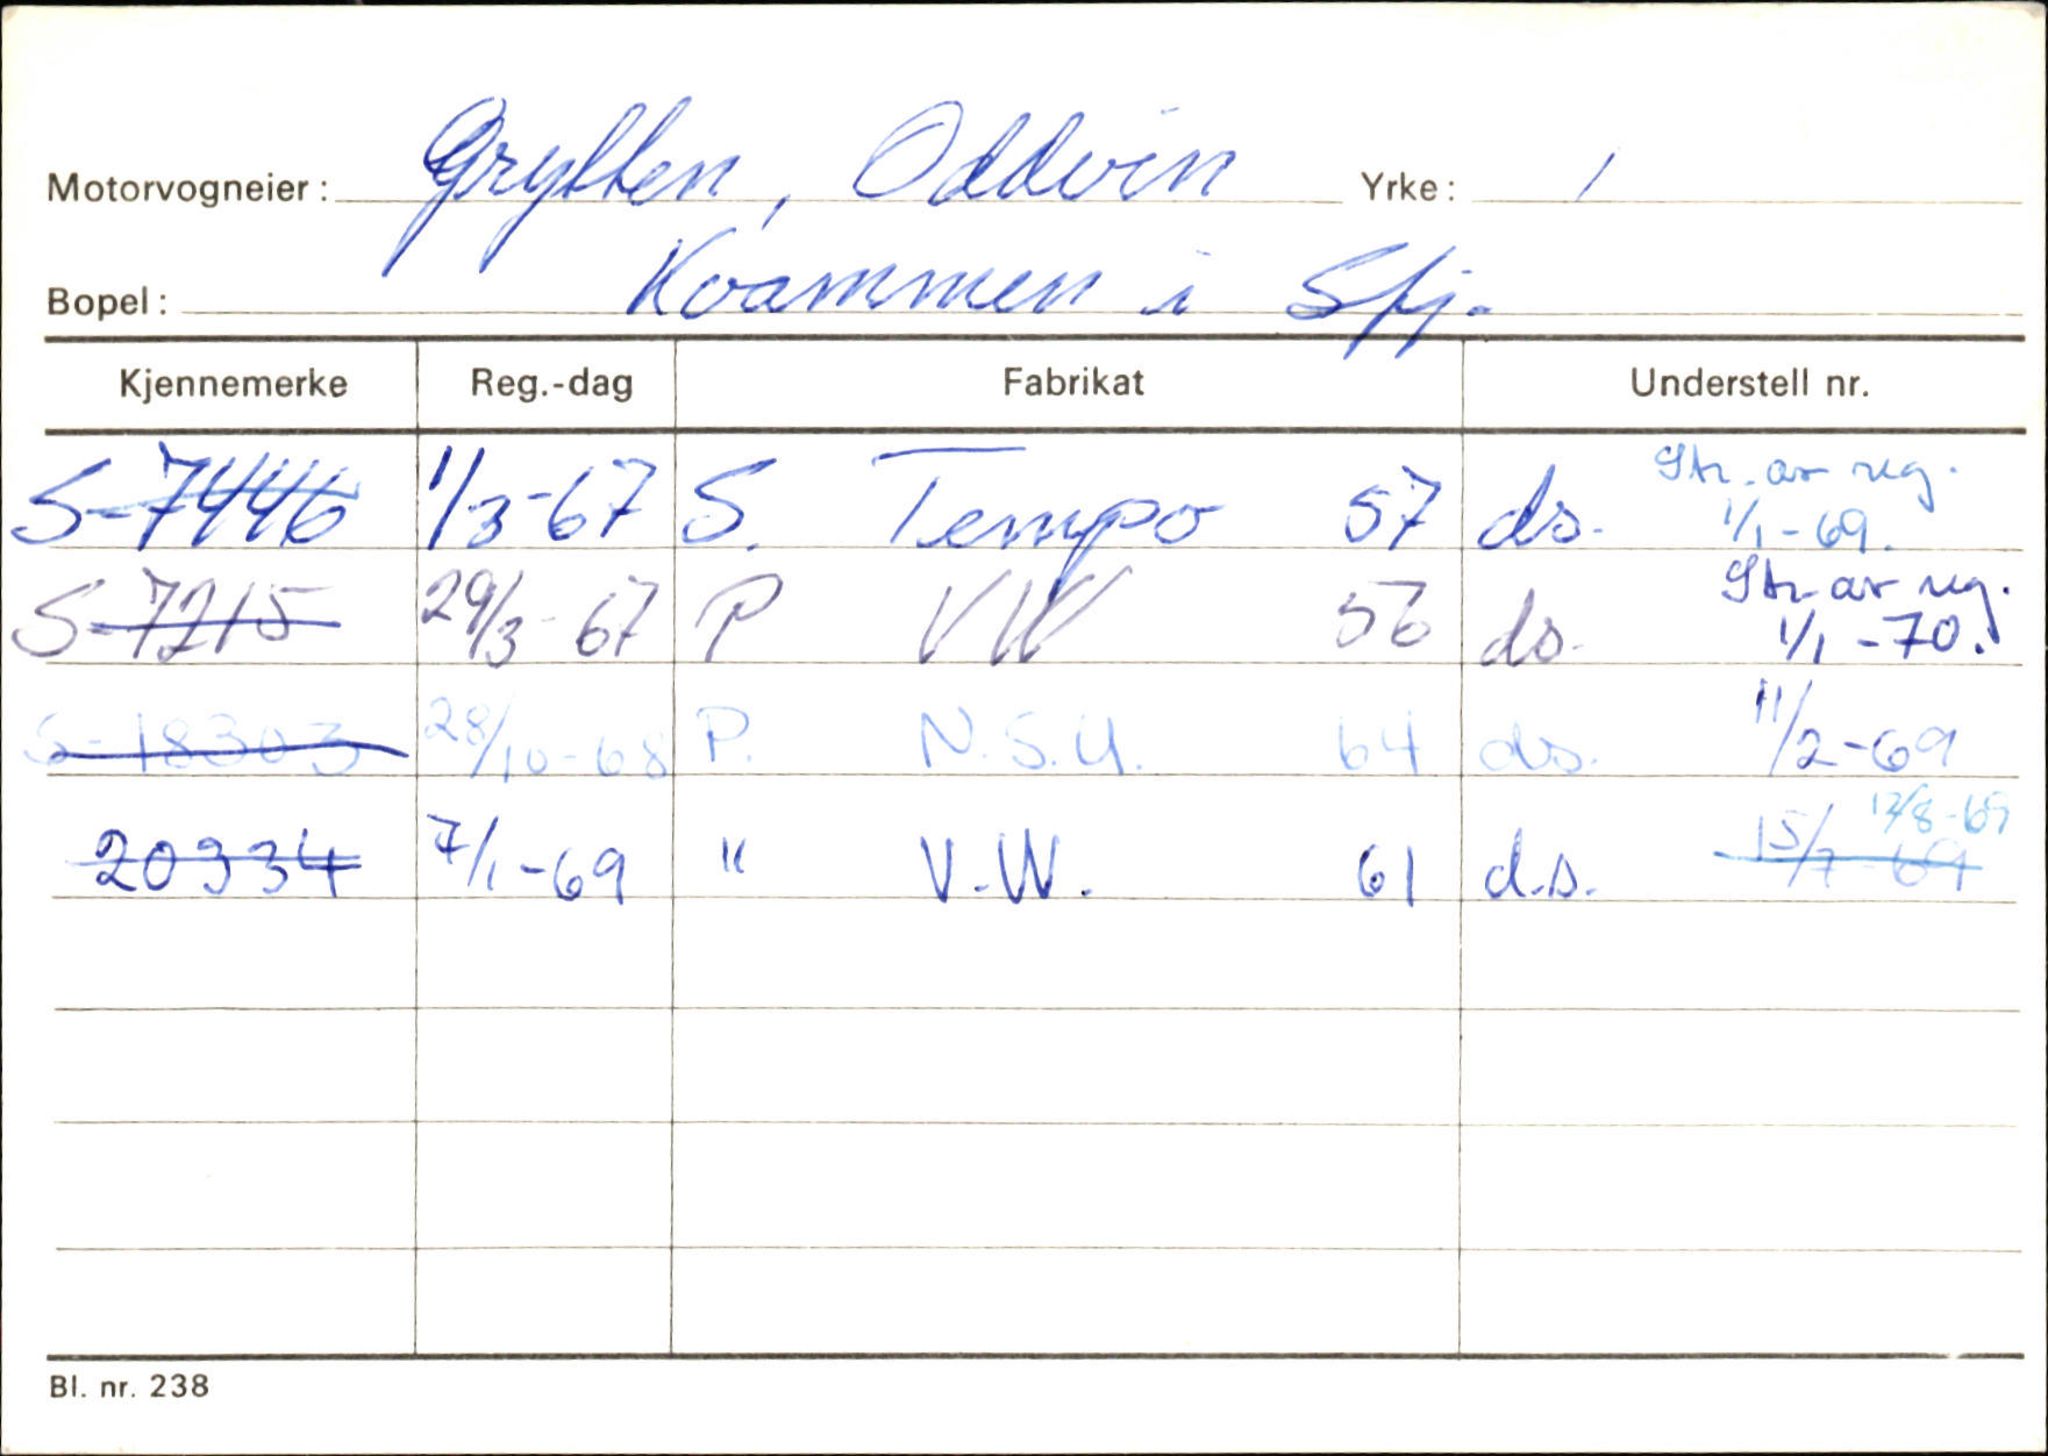 Motorvogneier: Grytten, Oddvin Yrke: /
Bopel: Kvammen i Sfj.
Kjennemerke Reg.-dag Fabrikat Understell nr.
S-7446 1/3-67 S. Tempo 57 ds. Str. av reg. 1/1-69.
S-7215 29/3-67 P VW 56 ds. Str. av reg. 1/1-70.
S-18303 28/10-68 P. N.S.U. 64 ds. 11/2-69
20334 7/1-69 " V.W. 61 d.s. 15/7-69 12/8-69
Bl. nr. 238